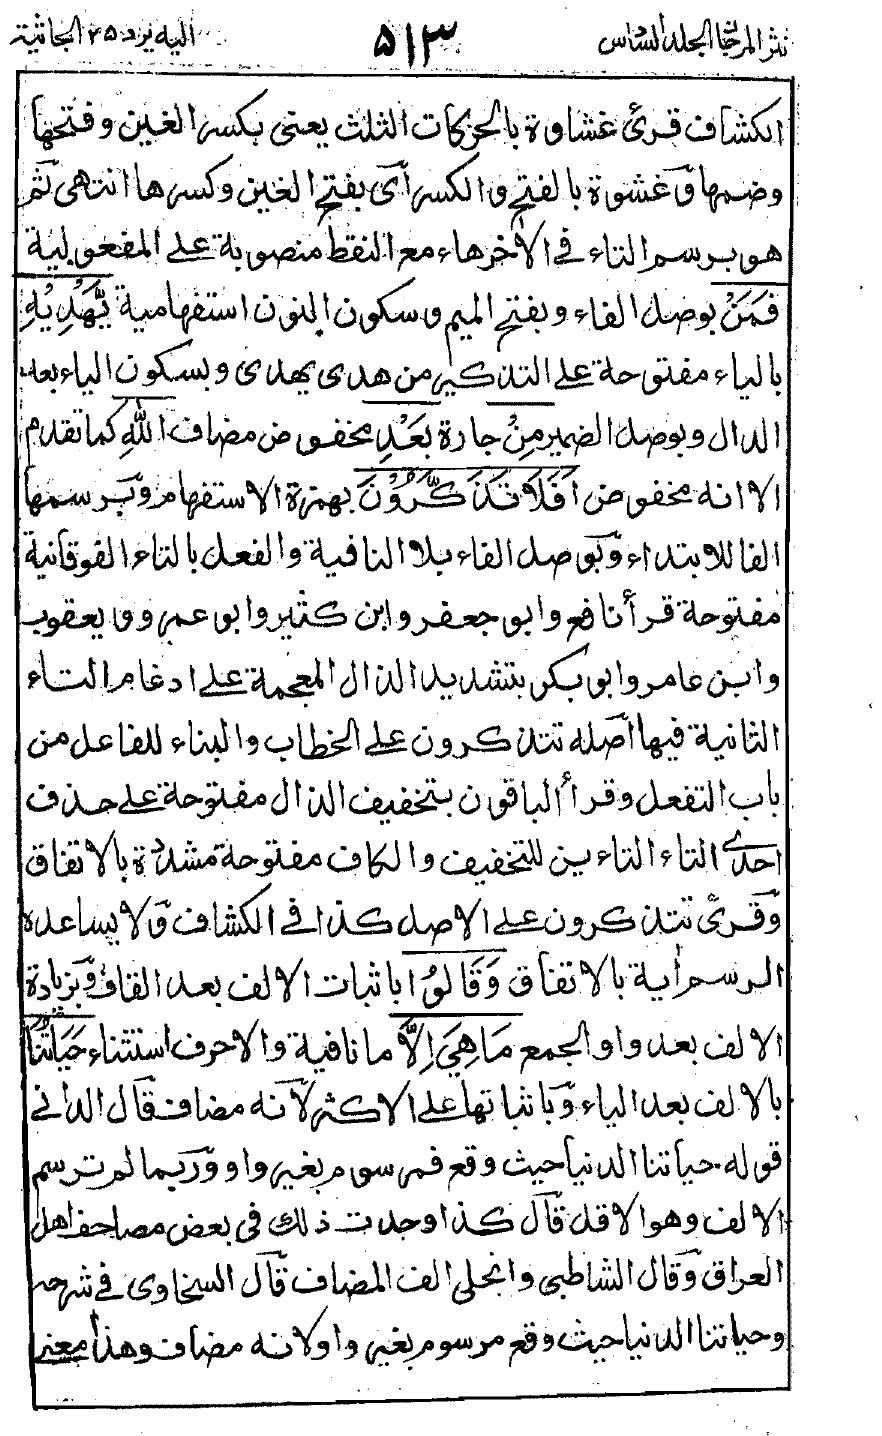 نثر المرجان الجلد السادس ٥١٣ اليه يرد ٢٥ الجاثية
الكشاف قرئ غشاوة بالحركات الثلث يعنى بكسر الغين وفتحها
وضمها وَغشوة بالفتح والكسر اَى بفتح الغين وكسرها انتهى ثم
هو برسم التاء فى الاٰخر هاء مع النقط منصوبة على المفعولية
فَمَنْ بوصل الفاء وبفتح الميم وسكون النون استفهامية يَّهْدِيْهِ
بالياء مفتوحة على التذكير من هدى يهدى وبسكون الياء بعد
الدال وبوصل الضمير مِنْ جارة بَعْدِ مخفوض مضاف اللّٰهِ كما تقدم
الا انه مخفوض اَفَلَا تَذَكَّرُوْنَ بهمزة الاستفهام وَبرسمها
الفا للابتداء وَبوصل الفاء بلا النافية والفعل بالتاء الفوقانية
مفتوحة قرأ نافع وابو جعفر وابن كثير وابو عمرو ويعقوب
وابن عامر وابو بكر بتشديد الذال المعجمة على ادغام التاء
الثانية فيها اَصله تتذكرون على الخطاب والبناء للفاعل من
باب التفعل وقرأ الباقون بتخفيف الذال مفتوحة على حذف
احدى التاء التاءين للتخفيف والكاف مفتوحة مشددة بالاتفاق
وَقرئ تتذكرون على الاصل كذا فى الكشاف وَلا يساعده
الرسم اٰية بالاتفاق وَقَالُوْا باثبات الالف بعد القاف وَبزيادة
الالف بعد واو الجمع مَا هِيَ اِلَّا ما نافية والاحرف استثناء حَيَاتُنَا
بالالف بعد الياء وَباثباتها على الاكثر لاَنه مضاف قَال الدانى
قوله حياتنا الدنيا حيث وقع فمرسوم بغير واو وَربما لم ترسم
الالف وهو الاقل قَال كذا وجدت ذلك فى بعض مصاحف اهل
العراق وَقال الشاطبى وانجلى الف المضاف قَال السخاوى فى شرحه
وحياتنا الدنيا حيث وقع مرسوم بغير واو لانه مضاف وهذا معنى